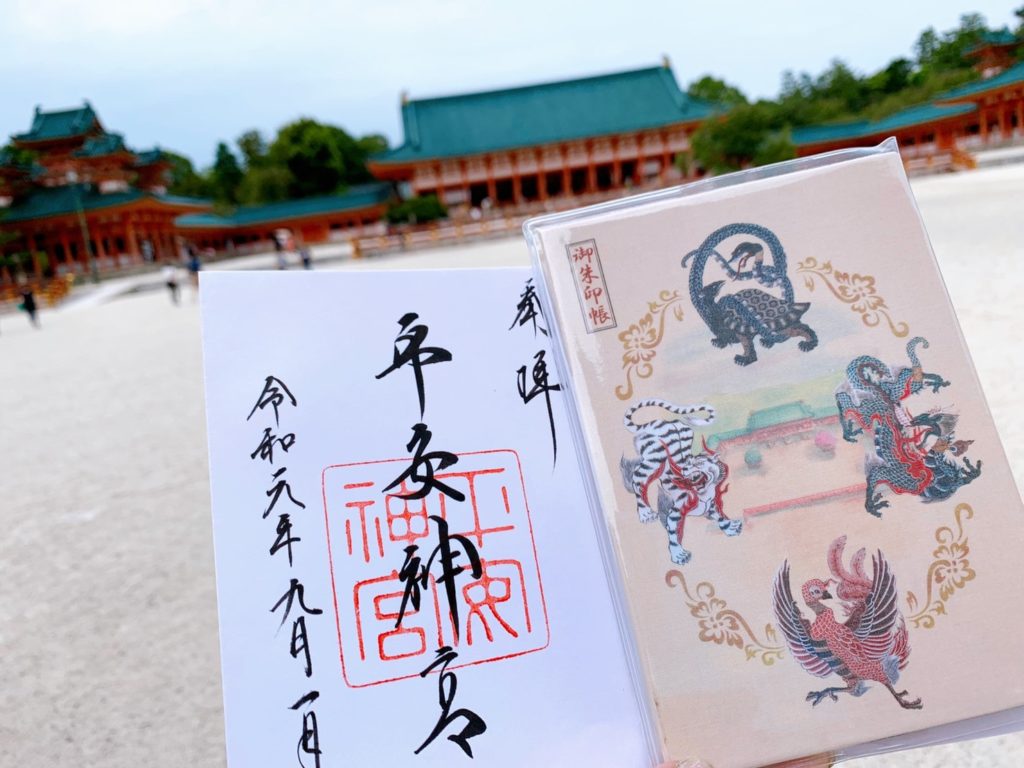 御朱印帳
奉拝
平安神宮
平安
神宮
令和元年九月一日